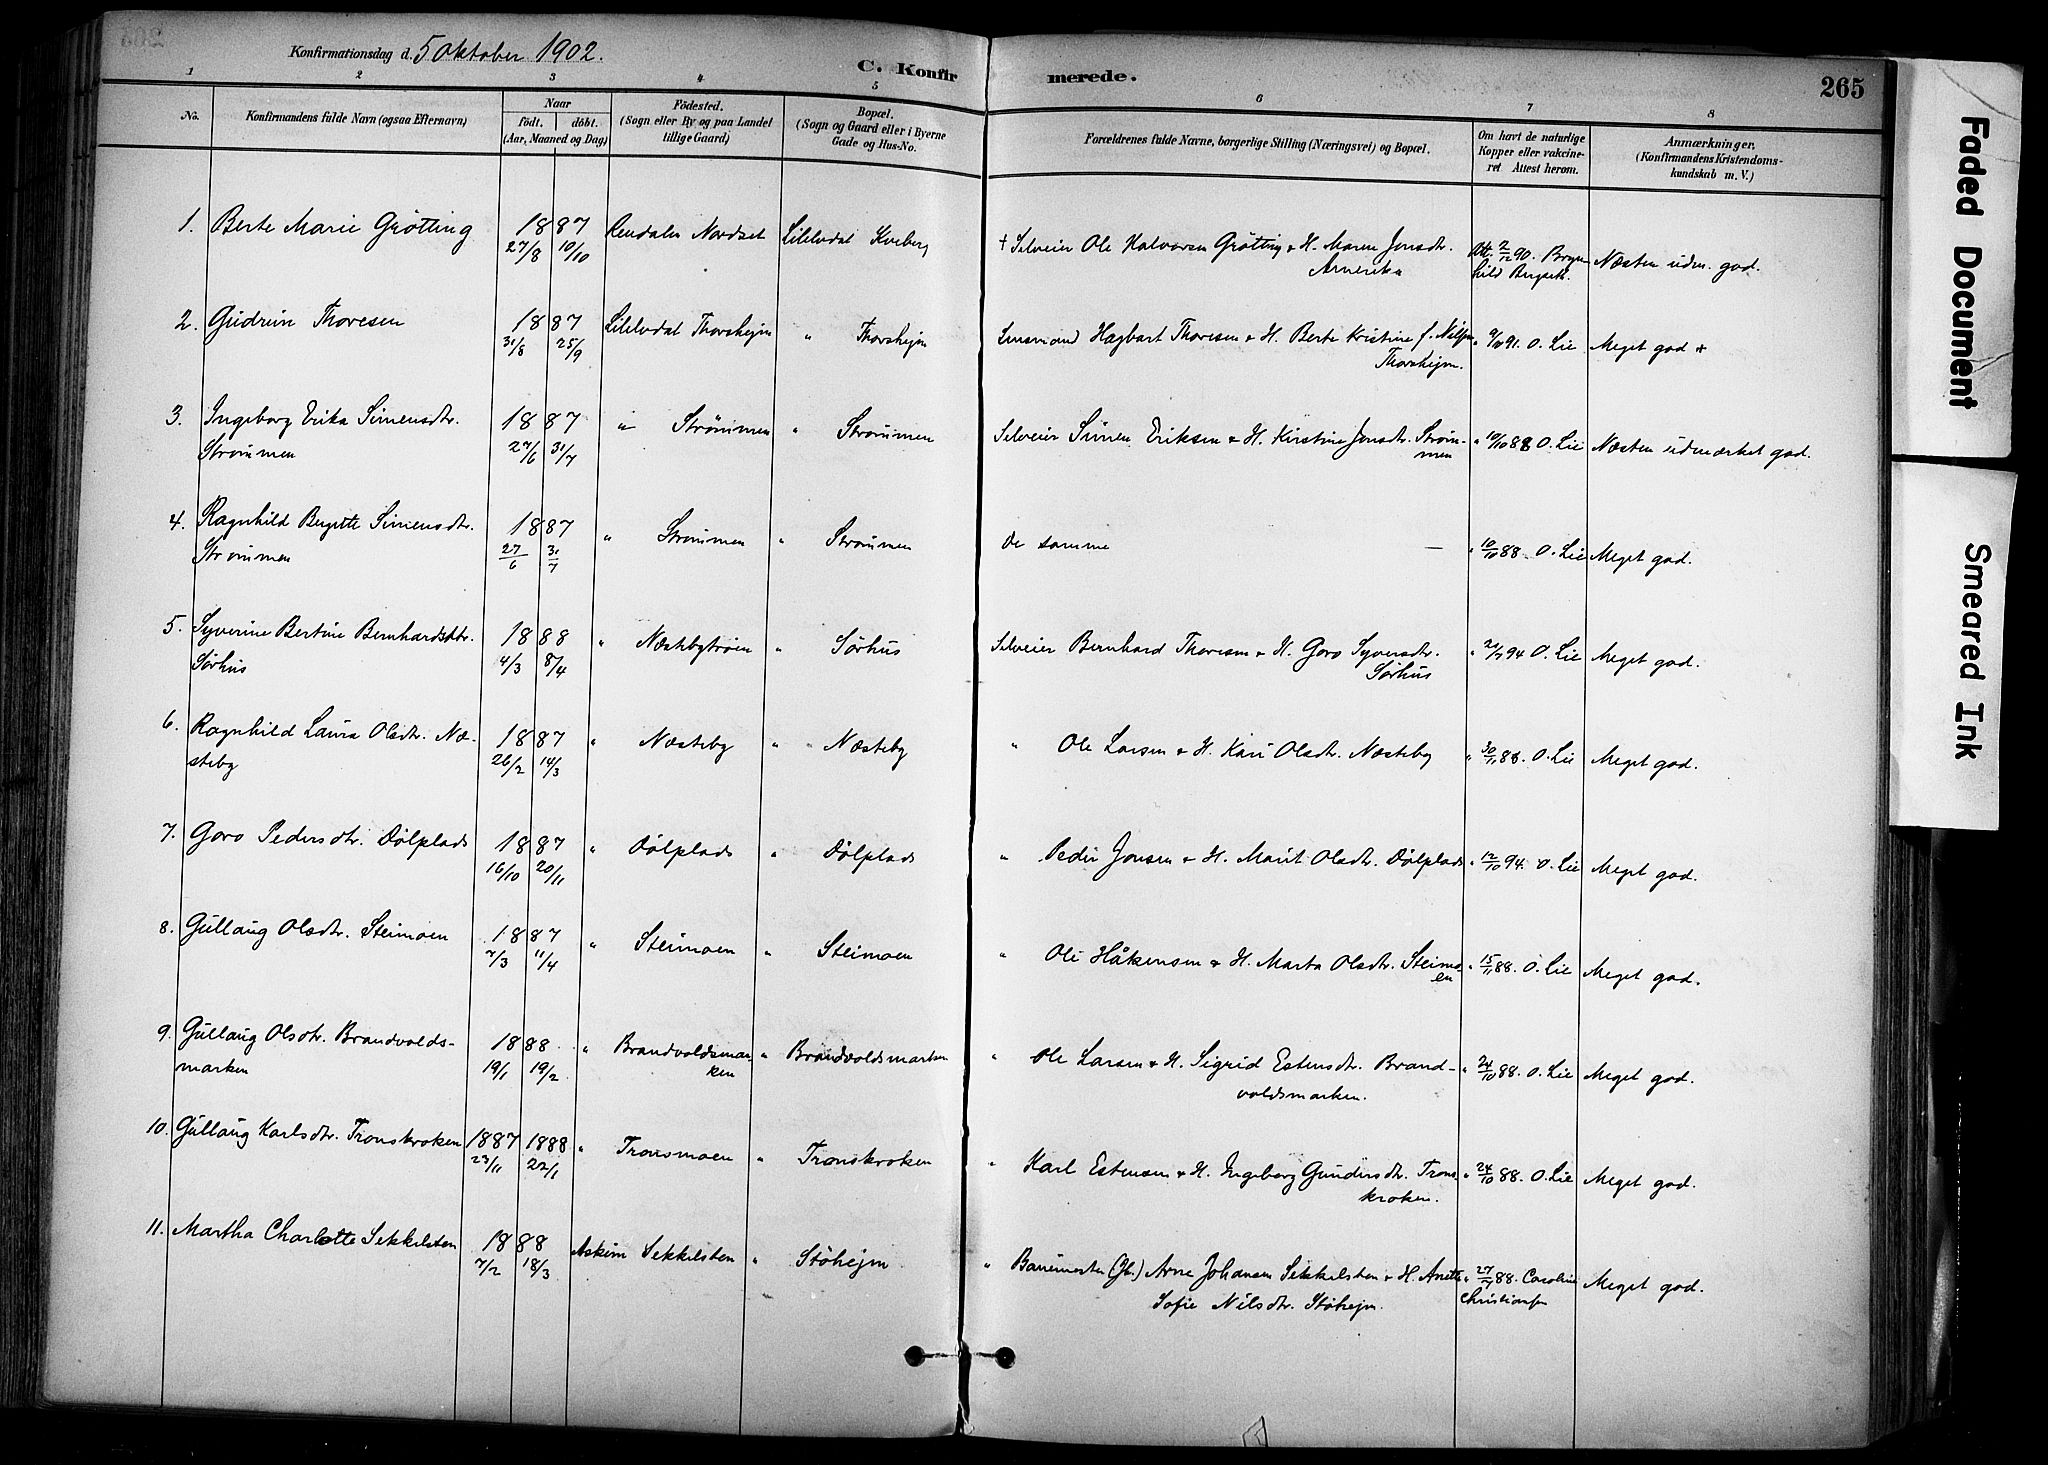 Konfirmationsdag d. 5 Oktober 1902.
C. Konfirmerede.
265
1 2 3 4 5 6 7 8
No.
Konfirmandens fulde Navn (ogsaa Efternavn)
Naar
födt. döbt.
(Aar, Maaned og Dag)
Födested.
(Sogn eller By og paa Landet
tillige Gaard)
Bopæl.
(Sogn og Gaard eller i Byerne
Gade og Hus-No.
Forældrenes fulde Navne, borgerlige Stilling (Næringsvei) og Bopæl.
Om havt de naturlige
Kopper eller vakcine-
ret Attest herom.
Anmærkninger.
(Konfirmandens Kristendoms-
kundskab m. V.)
1. Berte Marie Grötting 1887 27/8 10/10 Rendalen Nordset Lilleelvdal Kveberg
+ Selveier Ole Halvorsen Grötting & H. Maren Jonsdtr.
Amerika
Att. 2/12 90. Næsten udm. god.
2. Gudrun Thoresen 1887 31/8 25/9 Lilleelvdal Thorshejm " Thorshejm
Lensmand Hagbart Thoresen & H. Berte Kristine f. Nilsen
Thorshejm.
91. O. Lie Meget god +
3. Ingeborg Erika Simensdtr.
Strømmen 1887 27/6 31/7 " Strømmen " Strømmen
Selveier Simen Eriksen & H. Kirstine Jonsdtr. Strøm-
men
" 10/10 88 O. Lie Næsten udmærket god.
4. Ragnhild Birgitte Simensdtr.
Strømmen 1887 27/6 31/7 " Strømmen " Strømmen
De samme — " 10/10 88. O. Lie Meget god.
5. Syverine Bertine Bernhardsdtr.
Sørhus 1888 4/3 8/4 " Næstebytrøen " Sørhus
Selveier Bernhard Thoresen & H. Goro Syversdtr.
Sörhus
94 O. Lie Meget god.
6. Ragnhild Laura Olsdtr. Næ-
steby 1887 26/2 14/3 " Næsteby " Næsteby
" Ole Larsen & H. Kari Olsdtr. Næsteby " 30/11 88. O. Lie Meget god.
7. Goro Pedersdtr. Dølplads 1887 16/10 20/11 " Dølplads " Dølplads
" Peder Jonsen & H. Marit Olsdtr. Dølplads " 12/10 94. O. Lie Meget god.
8. Gullaug Olsdtr. Steimoen 1887 7/3 11/4 " Steimoen " Steimoen
" Ole Håkensen & H. Marta Olsdtr. Steimo-
en
" 15/11 88. O. Lie Meget god.
9. Gullaug Olsdtr. Brandvolds-
marken 1888 19/1 19/2 " Brandvoldsmar-
ken " Brandvoldsmarken
" Ole Larsen & H. Sigrid Estensdtr. Brand-
voldsmarken.
" 24/10 88. O. Lie Meget god.
10. Gullaug Karlsdtr. Tronskroken 1887 23/11 1888 22/1 " Tronsmoen " Tronskroken
" Karl Estensen & H. Ingeborg Gundersdtr. Trons-
kroken.
" 24/10 88. O. Lie Meget god.
11. Martha Charlotte Sekkelsten 1888 7/2 18/3 Askim Sekkelsten " Støhejm
" Banemester (Gb.) Arne Johansen Sekkelsten & H. Anette
Sofie Nilsdtr. Støhejm.
88. Caroline
Christiansen
Meget god.
Faded Document
Smeared Ink